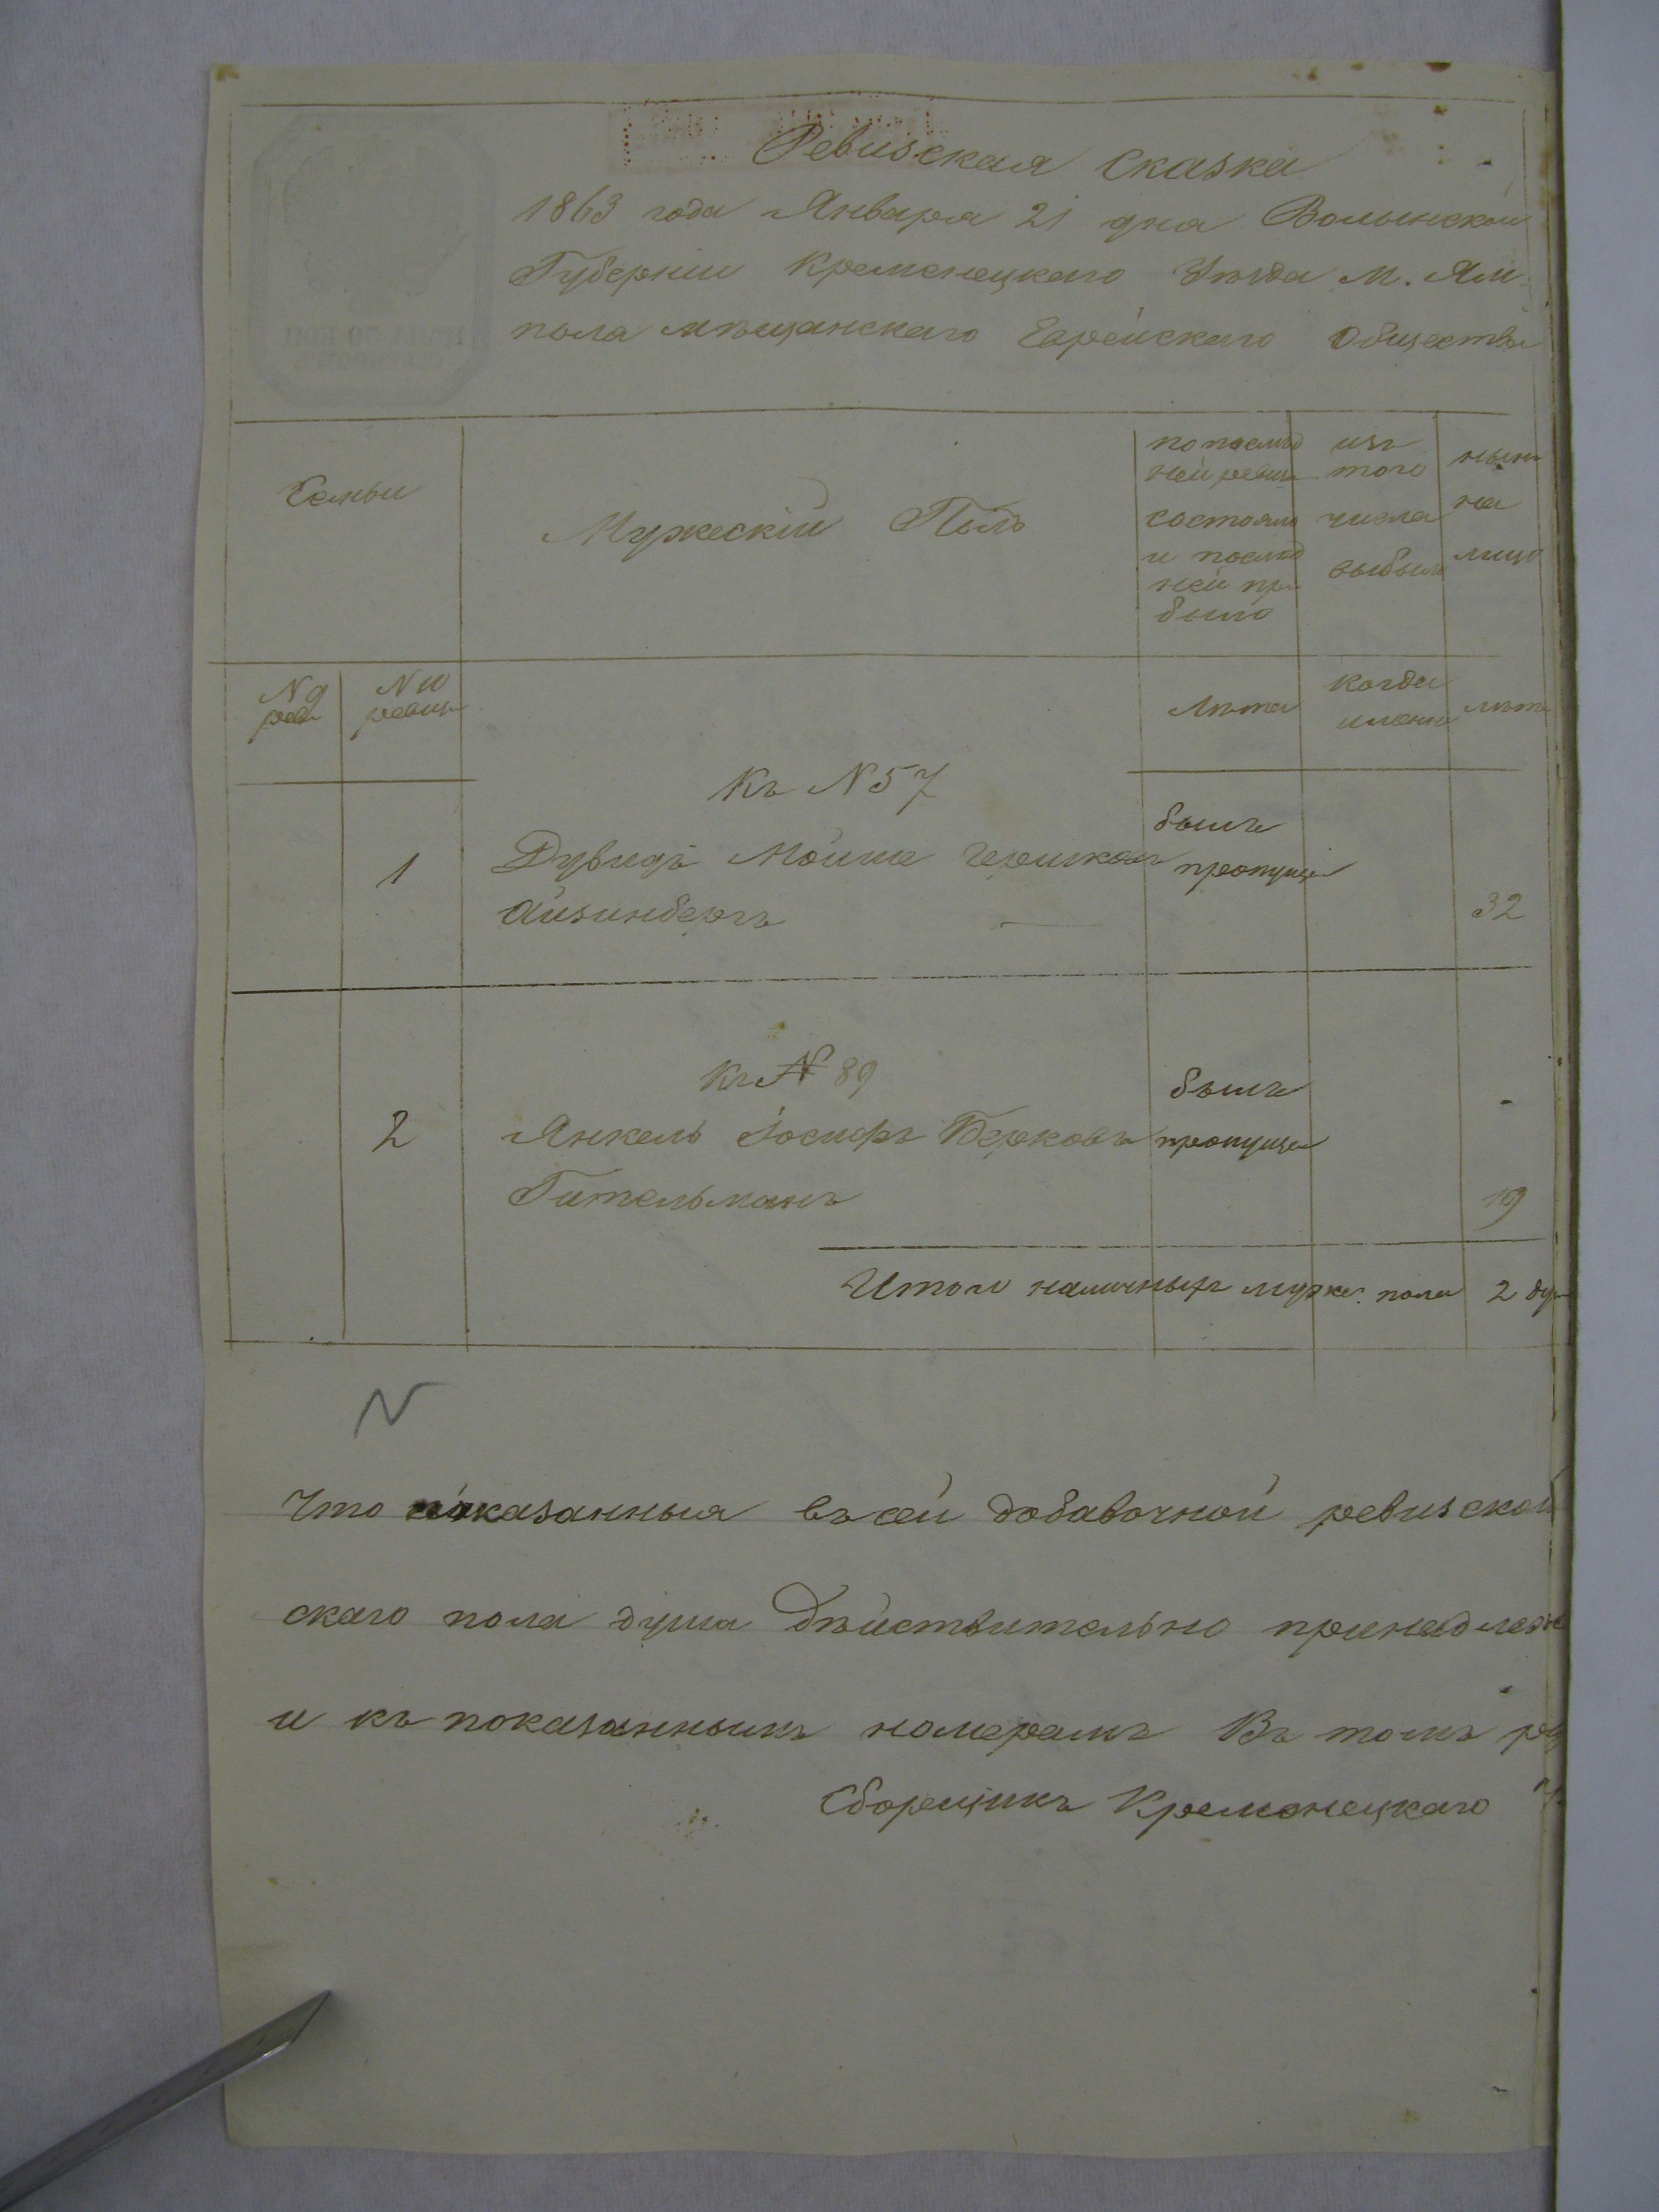 Ревизская сказка
1863 года Января 21 дня Волынской
Губерніи Кременецкаго Уѣзда М. Ям
пола мѣщанскаго Еврейскаго Общества
Семьи
Мужескій Полъ
по послѣд
ней ревиз
состояло
и послѣд
ней при
было
изъ
того
числа
выбыло
нынѣ
на
лицо
N 9
рев
N 10
ревиз
Лѣта
когда
именно
лѣта
Къ N 57
1
Дувидъ Мойше Гершковъ
Айзинбергъ
былъ
пропущен
32
Къ N 89
2
Янкель Іосифъ Берковъ
Гительманъ
былъ
пропущен
19
Итого наличныхъ муже. пола 2 ду
N
Что показанныя въ сей добавочной ревизской
скаго пола душа дѣйствительно принадлеж
и къ показаннымъ номерамъ Въ томъ ру
Сборщикъ Кременецкаго